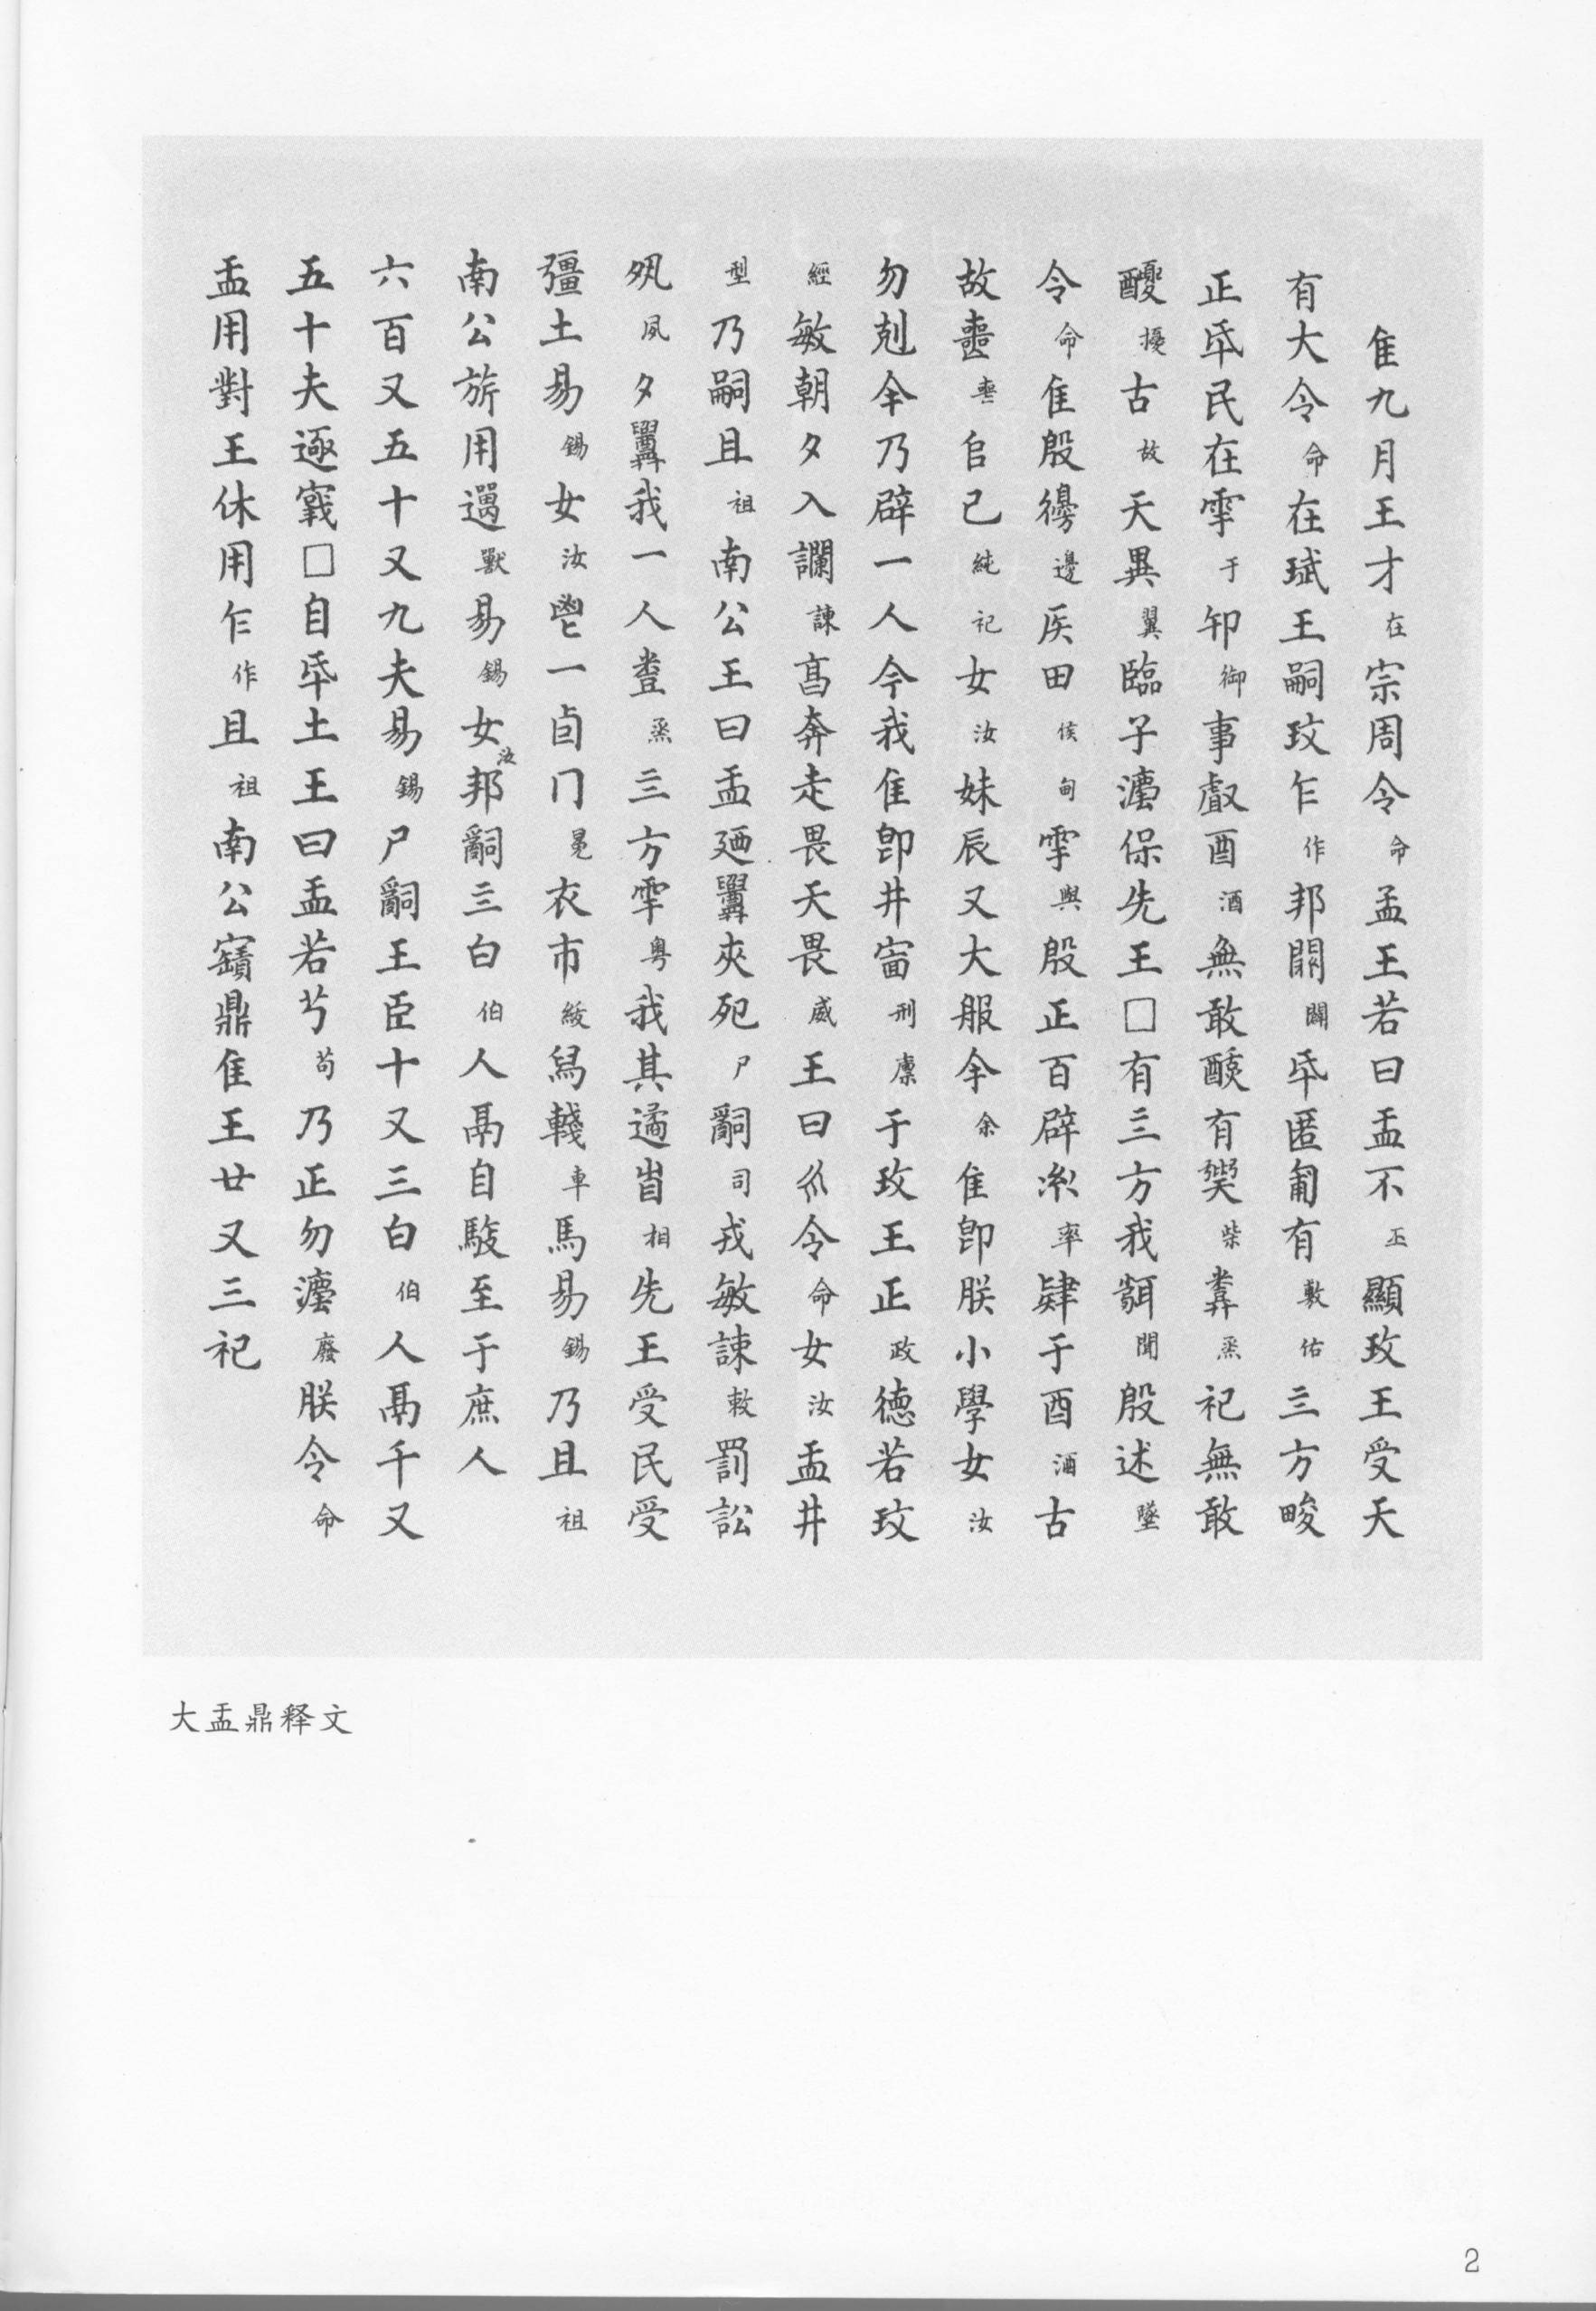 隹九月王才在宗周令命盂王若曰盂不丕顯玟王受天
有大令命在珷王嗣玟乍作邦闢闢氒匿匍有敷佑三方畯
正氒民在雩于卸御事𠭯酉酒無敢酖有髭柴䔲烝祀無敢
醻擾古故天異翼臨子灋保先王□有三方我聞殷述墜
令命隹殷邊邊侯田侯甸雩與殷正百辟率率肄于酉酒古
故喪喪𠂤已純祀女汝妹辰又大服余余隹即朕小學女汝
勿剋余乃辟一人今我隹即井㐭刑廩于玟王正政德若玟
經敏朝夕入讕諫亯奔走畏天畏威王曰令命女汝盂井
型乃嗣且祖南公王曰盂廼召夾死尸𤔲司戎敏諫敕罰訟
夙夙夕召我一人烝三方雩粵我其遹省相先王受民受
彊土易錫女汝鬯一卣冂冕衣巿紱舄車馬易錫乃且祖
南公旂用遛獸易錫女汝邦𤔲三白伯人鬲自馭至于庶人
六百又五十又九夫易錫尸𤔲王臣十又三白伯人鬲千又
五十夫逐□自氒土王曰盂若芍苟乃正勿灋廢朕令命
盂用對王休用乍作且祖南公寶鼎隹王廿又三祀
大盂鼎释文
2